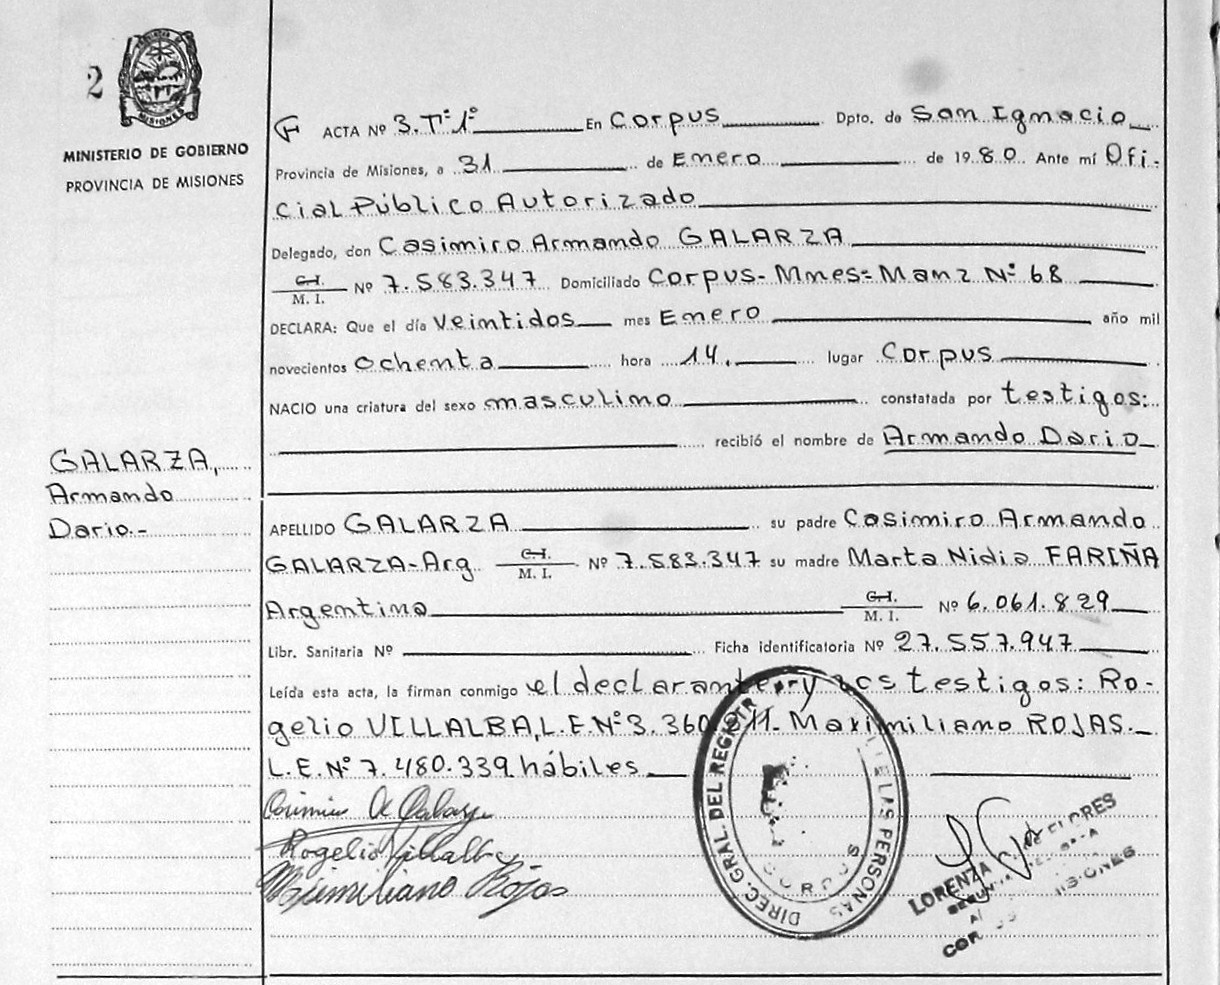 2
PROVINCIA DE
MISIONES
MINISTERIO DE GOBIERNO
PROVINCIA DE MISIONES
GALARZA,
Armando
Dario.-
F ACTA Nº 3.Tº1º En Corpus Dpto. de San Ignacio
Provincia de Misiones, a 31 de Enero de 1980. Ante mí Ofi-
cial Público Autorizado
Delegado, don Casimiro Armando GALARZA
C.I. M. I. Nº 7.583.347 Domiciliado Corpus-Mnes=Manz Nº 68
DECLARA: Que el día veintidos mes Enero año mil
novecientos ochenta hora 14. lugar Corpus
NACIO una criatura del sexo masculino constatada por testigos:
recibió el nombre de Armando Dario
APELLIDO GALARZA su padre Casimiro Armando
GALARZA-Arg. C.I. M. I. Nº 7.583.347 su madre Marta Nidia FARIÑA
Argentina C.I. M. I. Nº 6.061.829
Libr. Sanitaria Nº Ficha identificatoria Nº 27.557.947
Leída esta acta, la firman conmigo el declarante y los testigos: Ro-
gelio VILLALBA, L.E.Nº3.360. 11- Maximiliano ROJAS.
L.E.Nº 7.480.339 hábiles
Rogelio Villalba
Maximiliano Rojas
DIREC. GRAL. DEL REGISTR DE LAS PERSONAS
CORPUS
LORENZA FLORES
MISIONES